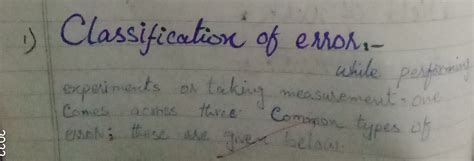 1) Classification of error:-
while performing
experiments or taking measurement. one
Comes across three Common types of
error; these are given below.